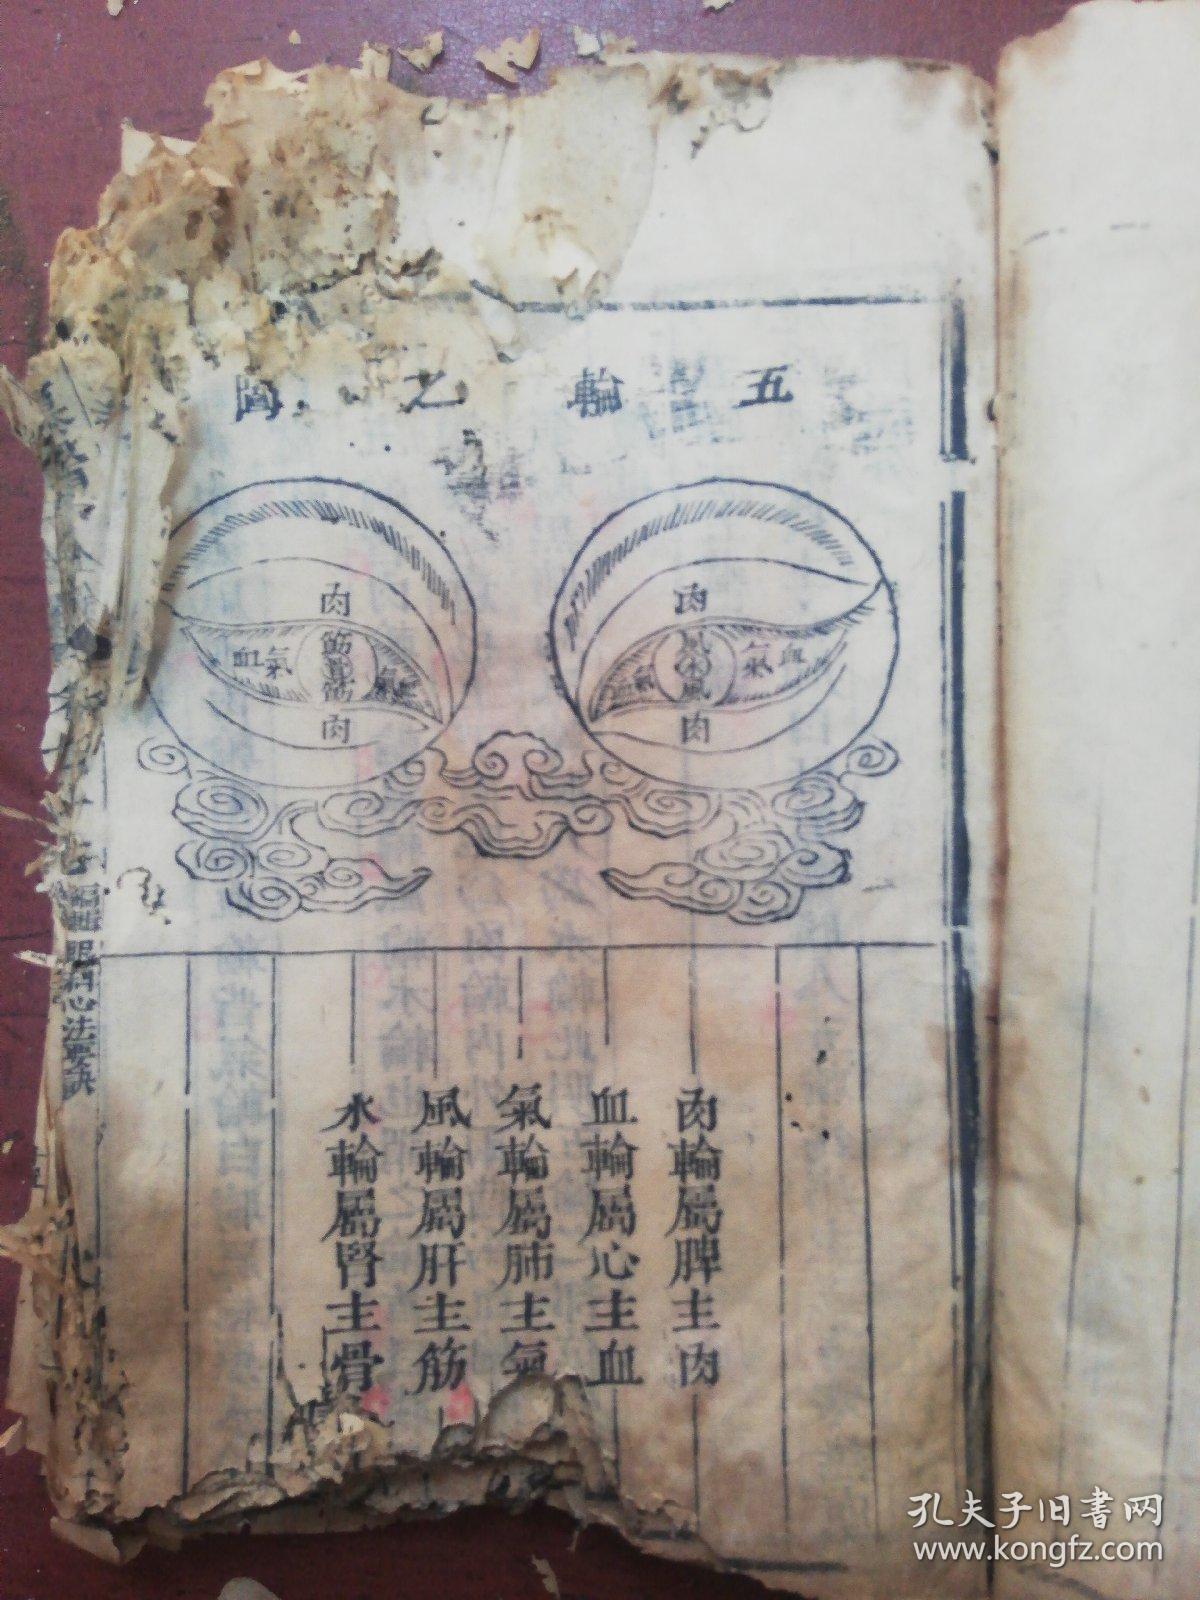 五輪之圖
肉
風
水
風
氣
血
氣
血
肉
肉
筋
骨
筋
氣
血
氣
肉
肉輪屬脾主肉
血輪屬心主血
氣輪屬肺主氣
風輪屬肝主筋
水輪屬腎主骨
編輯眼科心法要訣
孔夫子旧书网
www.kongfz.com